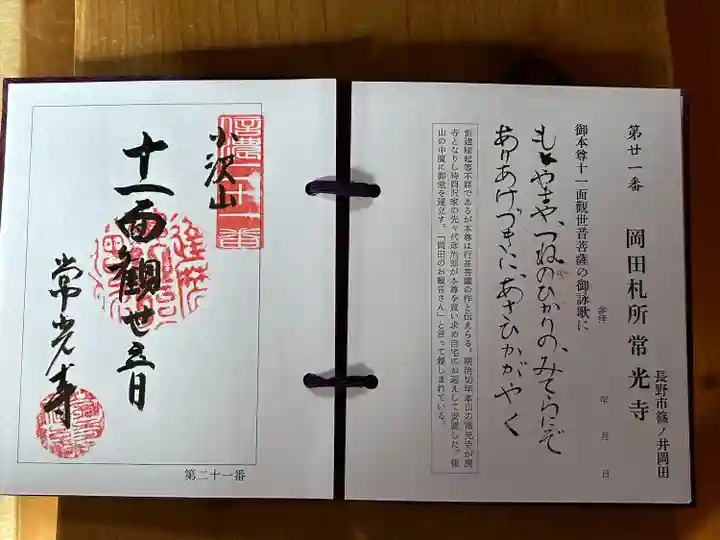 第廿一番　岡田札所常光寺
長野市篠ノ井岡田
参拝　年　月　日
御本尊十一面観世音菩薩の御詠歌に
もとやまや、つねのひかりの、みてらにぞ
ありあけづきに、あさひかがやく
創建縁起等不詳であるが本尊は行基菩薩の作と伝えらる。明治初年本山の常光寺が廃
寺となりし時岡沢家の先々代彦治郎が本尊を買い求め自宅にお迎えして安置した。後
山の中腹に御堂を建立す。「岡田のお観音さん」と言って親しまれている。
信濃二十一番
小沢山
十一面観世音
常光寺
第二十一番